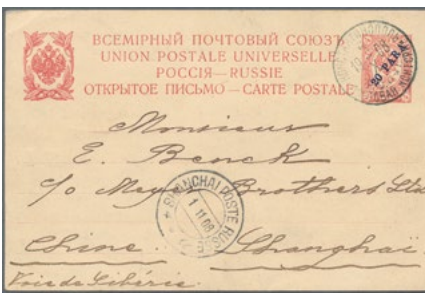 ВСЕМІРНЫЙ ПОЧТОВЫЙ СОЮЗЪ
UNION POSTALE UNIVERSELLE
РОССІЯ—RUSSIE
ОТКРЫТОЕ ПИСЬМО—CARTE POSTALE
20 PARA
Monsieur
E. Benck
c/o Meyer Brothers Ltd
SHANGHAI POSTE RUSSE
1 11 08
Chine Shanghaï
Voie de Sibérie.